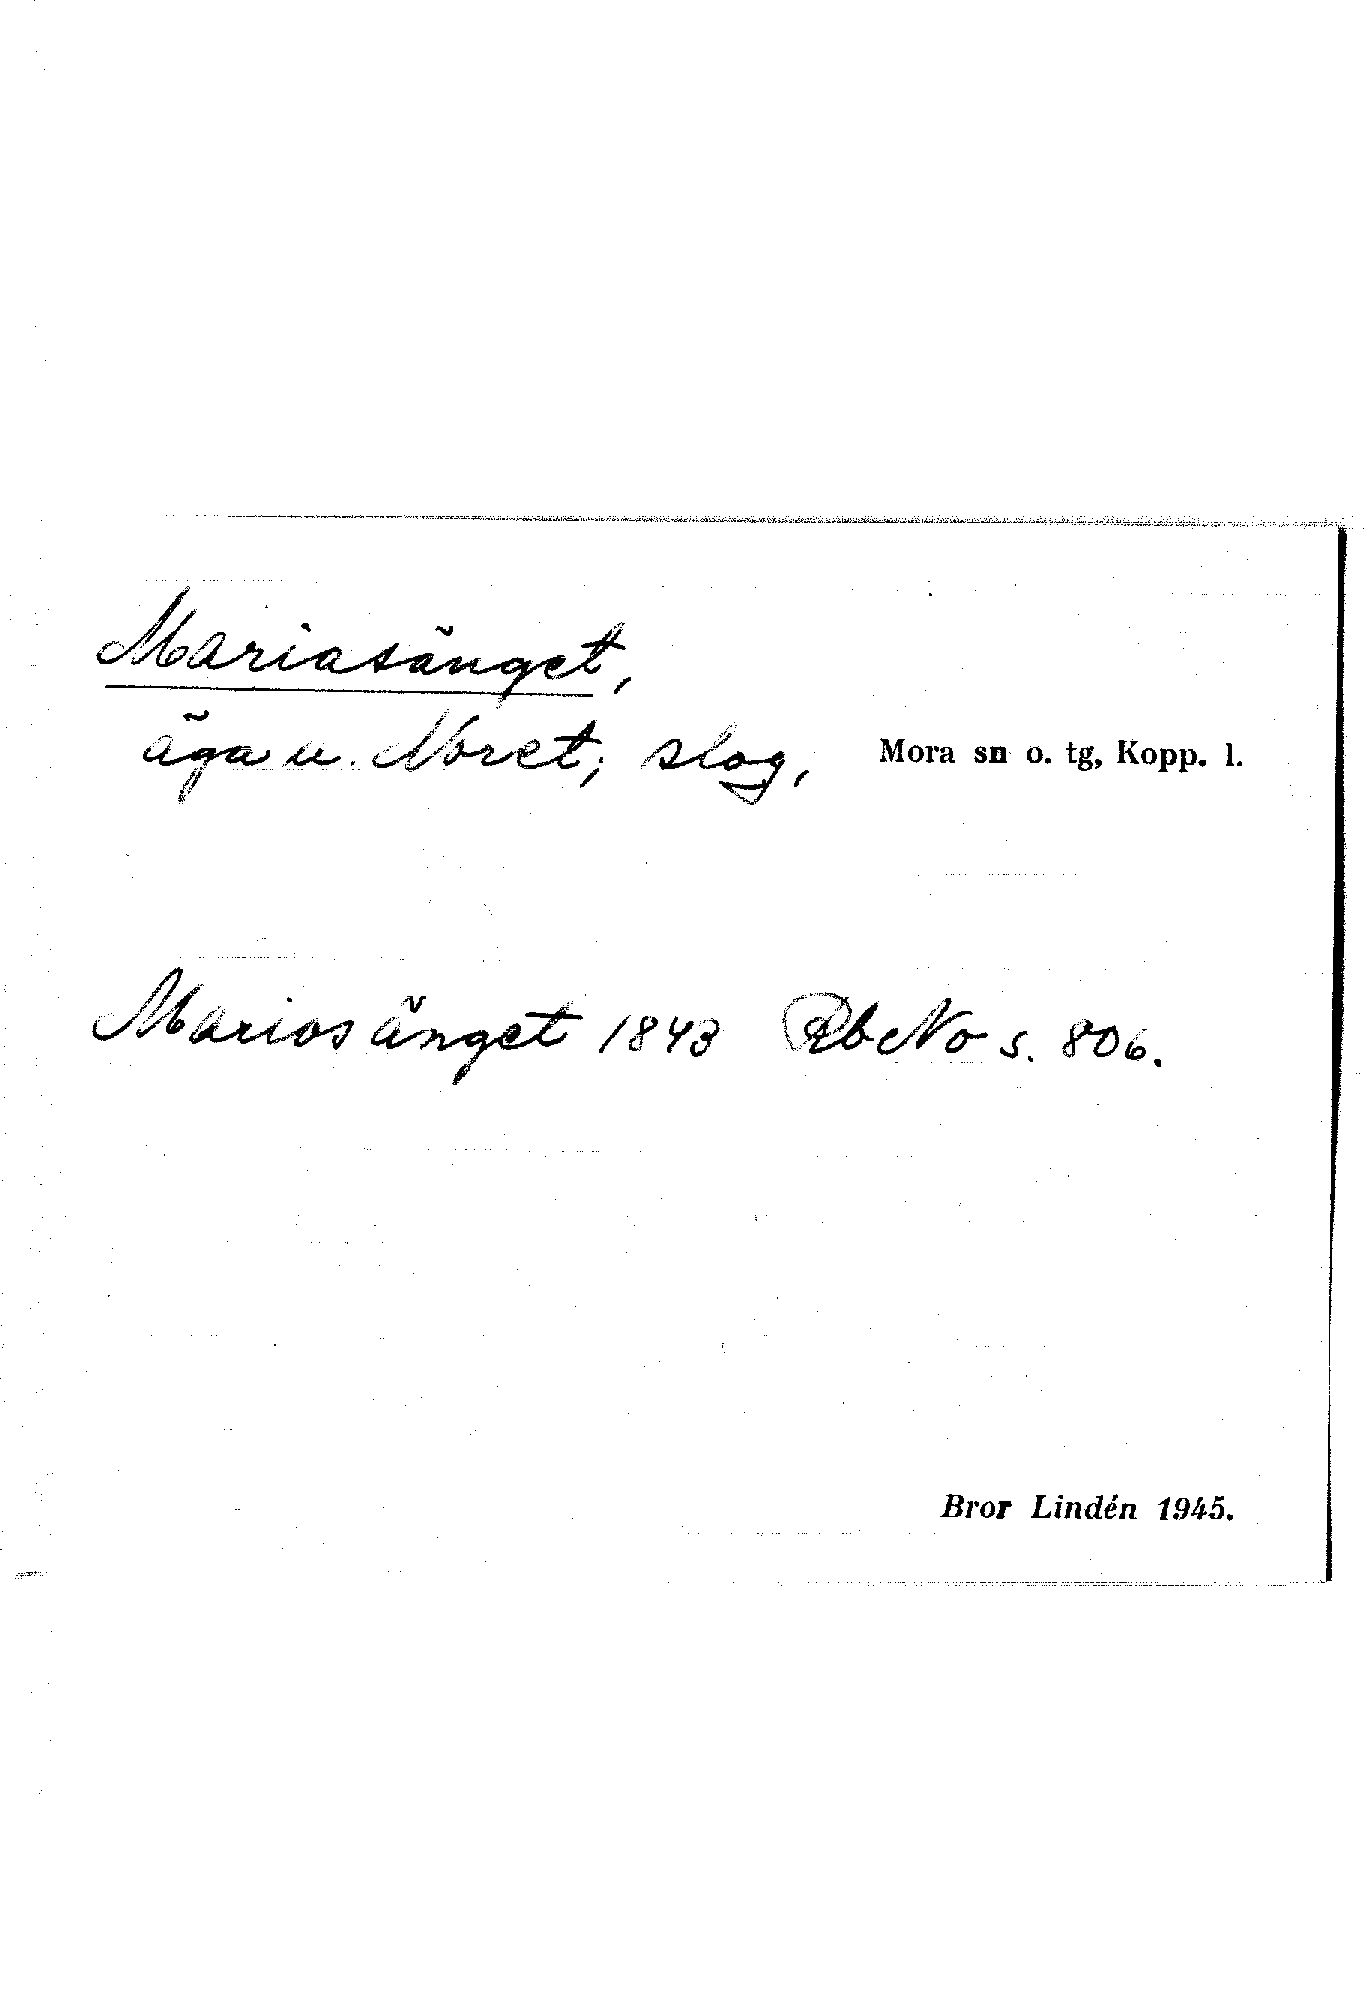 Mariasänget,
äga u. Noret; slog, Mora sn o. tg, Kopp. l.
Mariosänget 1843 RbNo s. 806.
Bror Lindén 1945.